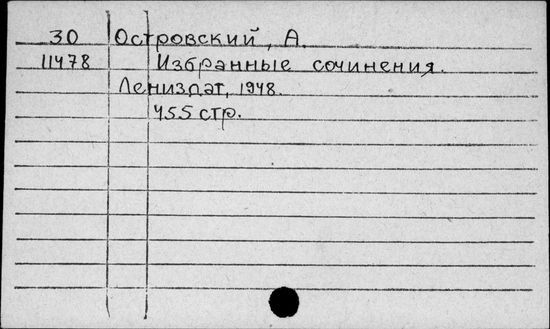 30 Островский, А.
11478 Избранные сочинения.
Лениздат, 1948.
455 стр.